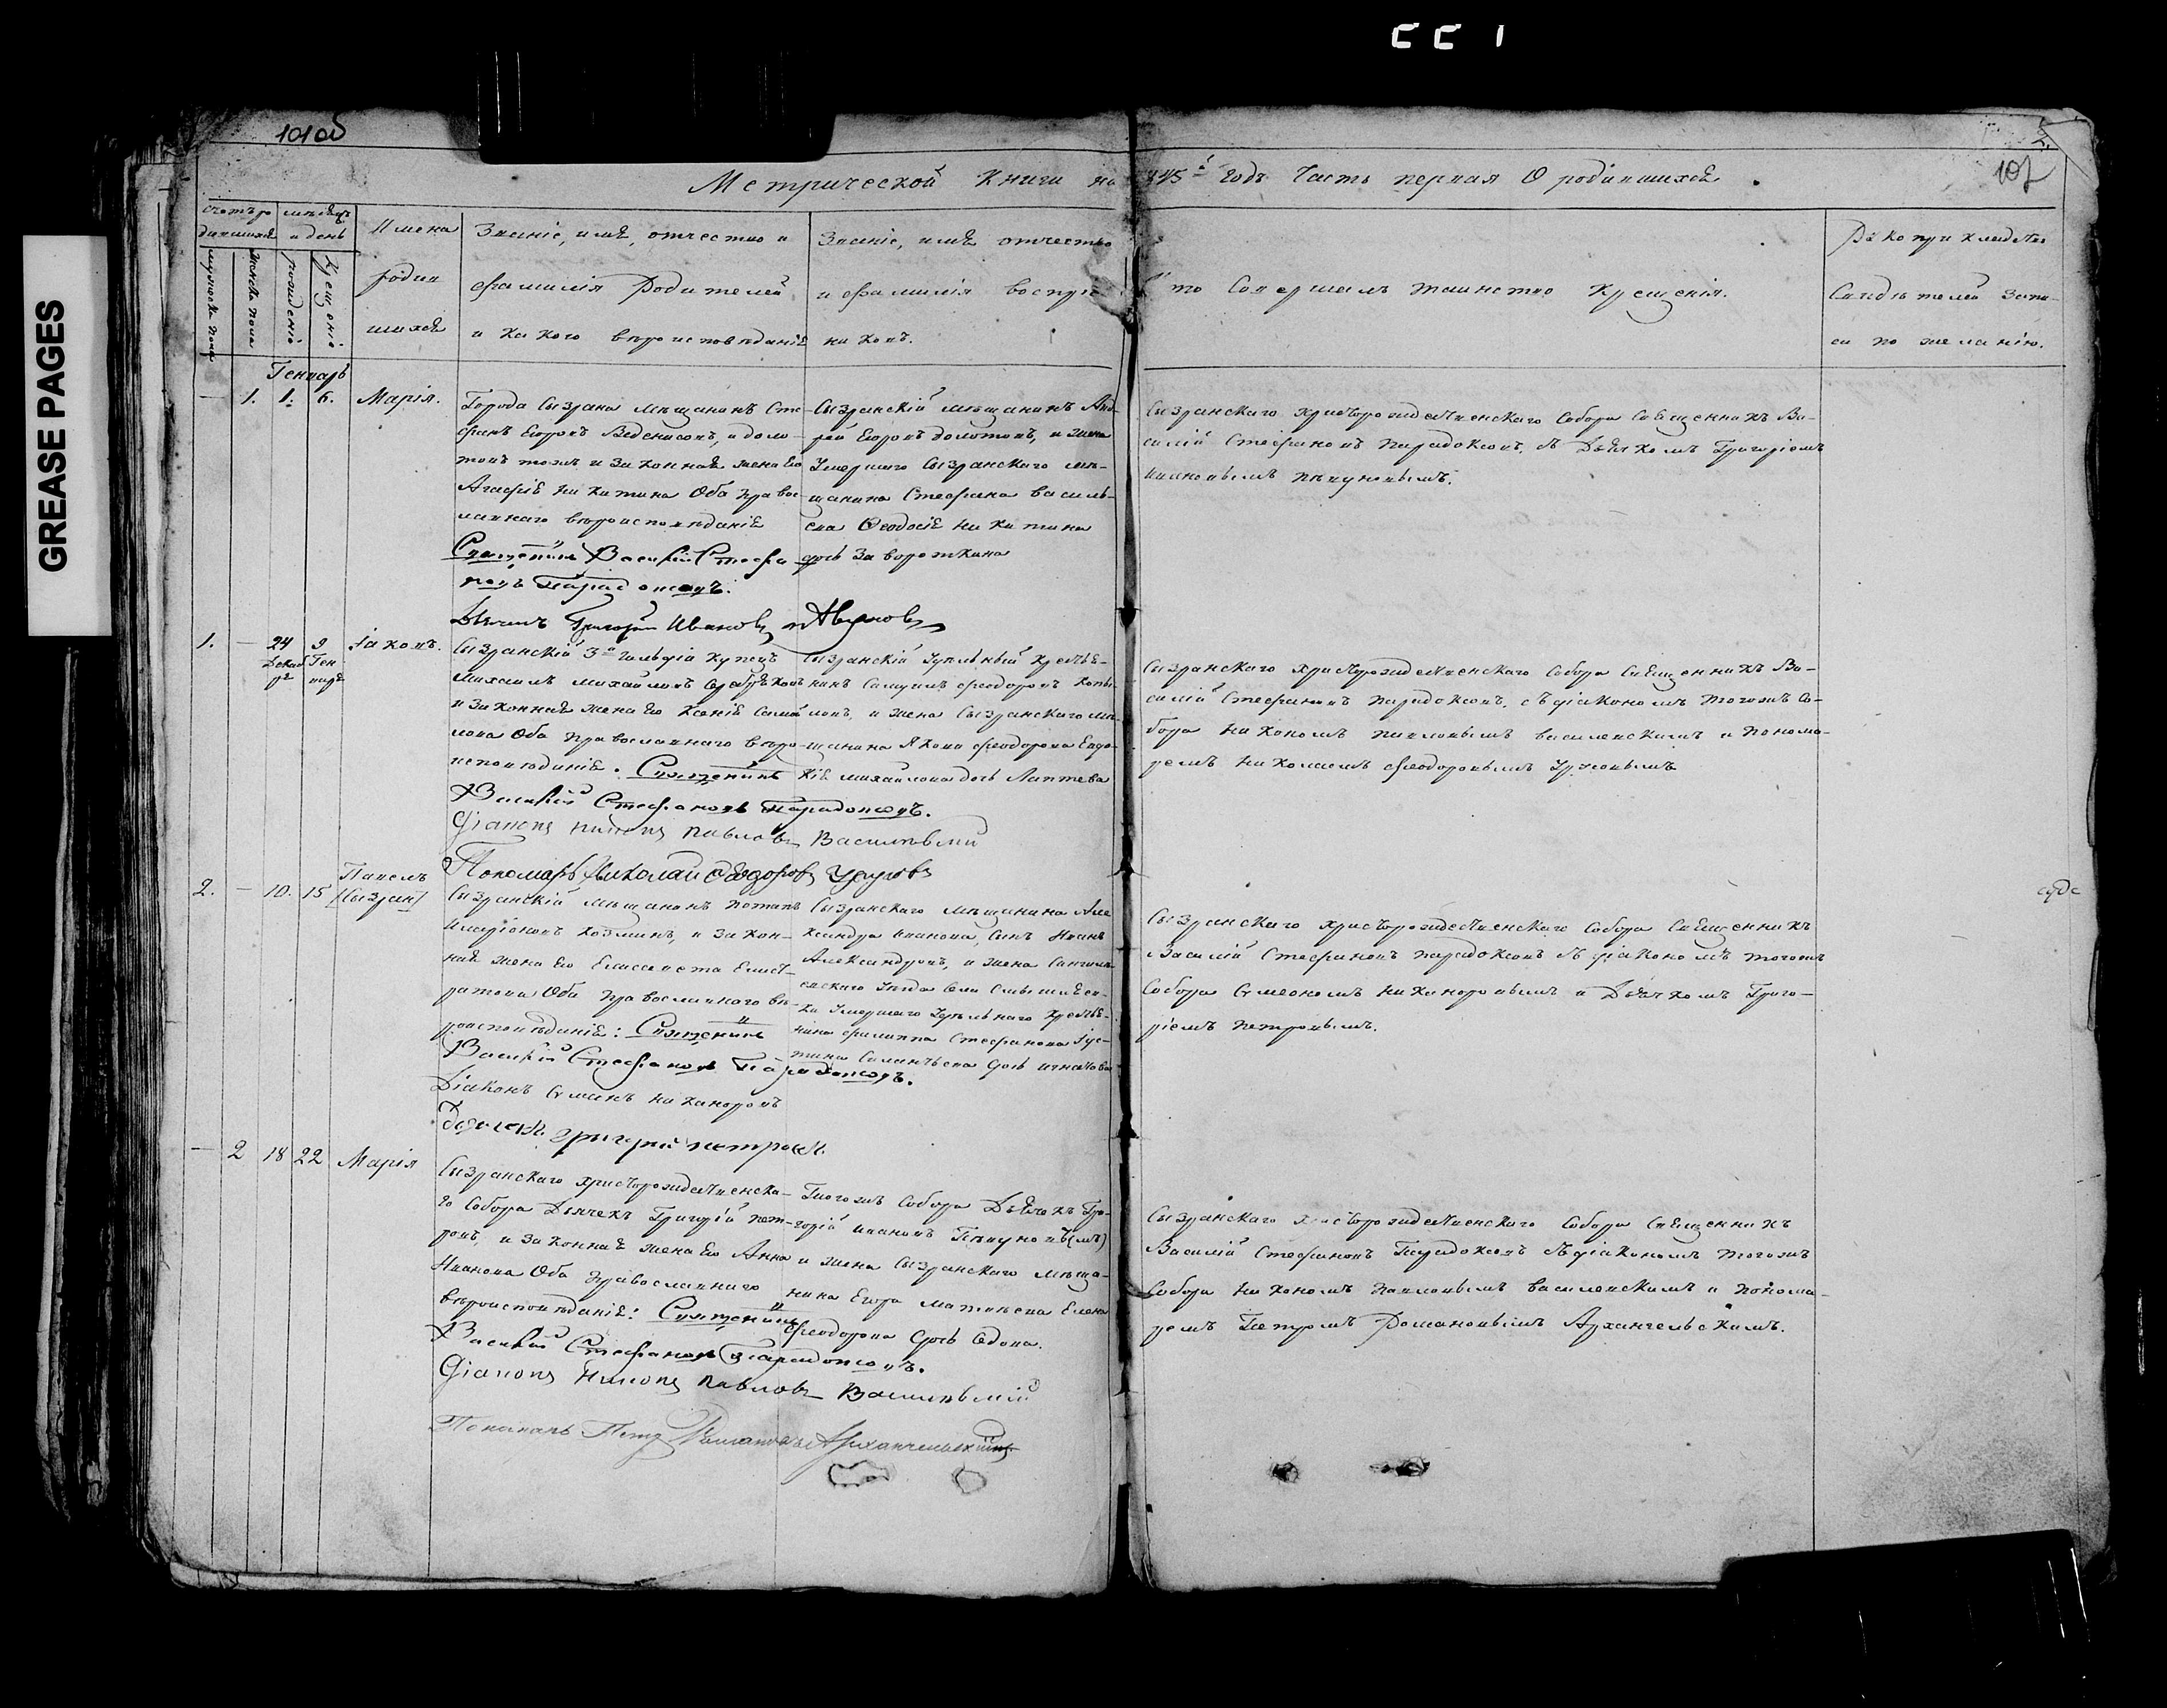 GREASE PAGES
101об
102
Метрической Книги на 1845й годъ Часть первая О родившихся.
счетъ родившихся
мѣсяцъ и день
мужеска пола
женска пола
рожденія
крещенія
Имена
родив
шихся
Званіе, имя, отчество и
фамилія Родителей
и какого вѣроисповѣданія
Званіе, имя отчество
и фамилія воспріем
никовъ.
Кто Совершалъ таинство крещенія.
Рукоприкладство
Свидѣтелей записи
по желанію.
Генварь
1. 1. 6. Марія.
Города Сызрана мѣщанинъ Сте-
фанъ Егоровъ
и законная жена его
Агафія Никитина Оба право-
славнаго вѣроисповѣданія
Священникъ Василій Стефа
новъ Парадоксовъ.
Дьячекъ Григорій Ивановъ
Сызранскій мѣщанинъ Анд-
рей Егоровъ Долотовъ, и жена
Умершаго Сызранскаго мѣ-
щанина Стефана Василь-
ева Феодосія Никитина
дочь Завороткина
Сызранскаго христорождественскаго Собора Священникъ Ва-
силій Стефановъ Парадоксовъ, съ Дьячкомъ Григоріемъ
Ивановымъ Пѣвуновымъ.
1. 24 Декабря 9 Генваря Іаковъ.
Сызранскій 3й гильдіи купецъ
Михаилъ Михайловъ Серебряковъ
и законная жена его Ксенія Самой
лова Оба православнаго вѣро-
исповѣданія. Священникъ
Василій Стефановъ Парадоксовъ.
Діаконъ Никонъ Павловъ Василевскій
Пономарь Николай Федоровъ
Сызранскій Удѣльный крестья-
нинъ Самуилъ Феодоровъ Копы-
ловъ, и жена Сызранскаго мѣ-
щанина Якова Феодорова Евдо-
кія Михайлова дочь Лаптева
Сызранскаго христорождественскаго Собора Священникъ Ва-
силій Стефановъ Парадоксовъ, съ діакономъ тогожъ Со-
бора Никономъ Павловымъ Василевскимъ и пономо-
ремъ Николаемъ Феодоровымъ
2. 10. 15 Павелъ
/Сызран/
Сызранскій мѣщанинъ Потапъ
Иларіоновъ Козминъ, и закон-
ная жена его Елисавета Елист-
ратова Оба православнаго вѣ-
роисповѣданія: Священникъ
Василій Стефановъ Парадоксовъ.
Діаконъ Сумеонъ Никаноровъ
Дьячекъ Григорій Петровъ.
Сызранскаго мѣщанина Але
ксандра Иванова, сынъ Иванъ
Александровъ, и жена Сенгиле-
евскаго Уѣзда села
Умершаго Удѣльнаго крестья-
нина Филиппа Стефанова Іус-
тина дочь Игнатова
Сызранскаго христорождественскаго Собора Священникъ
Василій Стефановъ Парадоксовъ съ діакономъ тогожъ
Собора Сумеономъ Никаноровымъ и Дьячкомъ Григо-
ріемъ Петровымъ.
2 18 22 Марія
Сызранскаго христорождественска-
го Собора Дьячекъ Григорій Пет-
ровъ, и законная жена его Анна
Иванова Оба православнаго
вѣроисповѣданія: Священникъ
Василій Стефановъ Парадоксовъ.
Діаконъ Никонъ Павловъ Василевскій
Пономарь Петръ Романовъ Архангельскій
Тогожъ Собора Дьячекъ Гри-
горій Ивановъ Пѣвуновъ
и жена Сызранскаго мѣща-
нина Егора Матвѣева Елена
Феодорова дочь Седова.
Сызранскаго христорождественскаго Собора Священникъ
Василій Стефановъ Парадоксовъ съ діакономъ тогожъ
Собора Никономъ Павловымъ Василевскимъ и понома-
ремъ Петромъ Романовымъ Архангельскимъ.